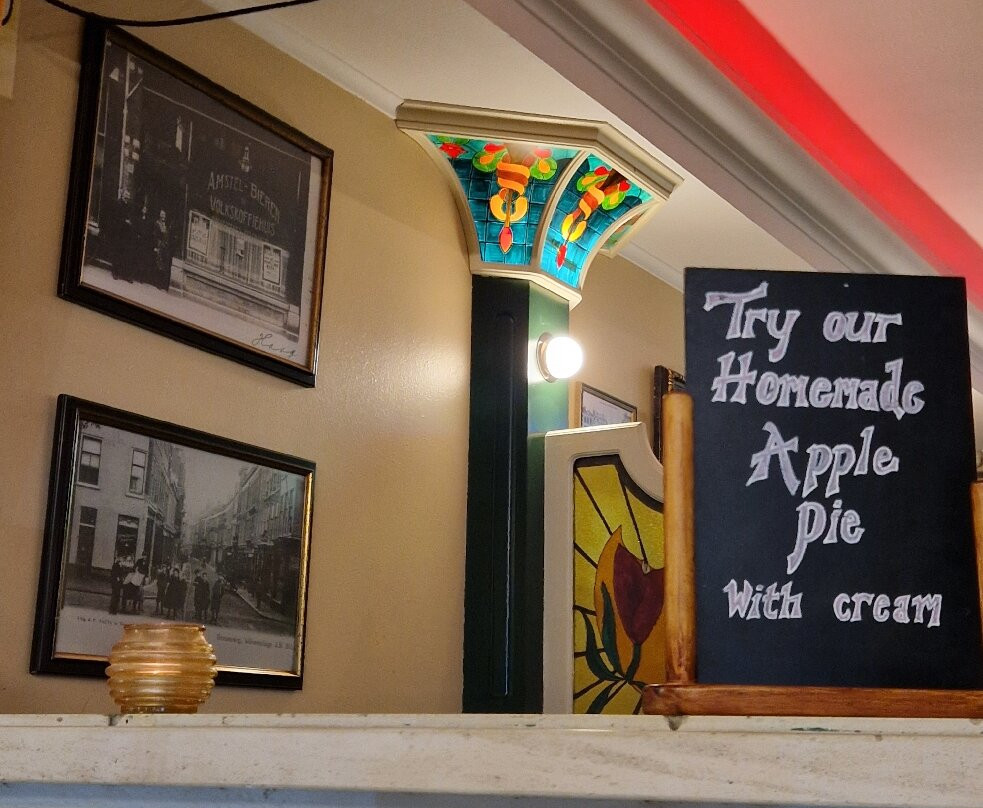 AMSTEL-BIEREN
VOLKSKOFFIEHUIS
Try our
Homemade
Apple
Pie
With cream